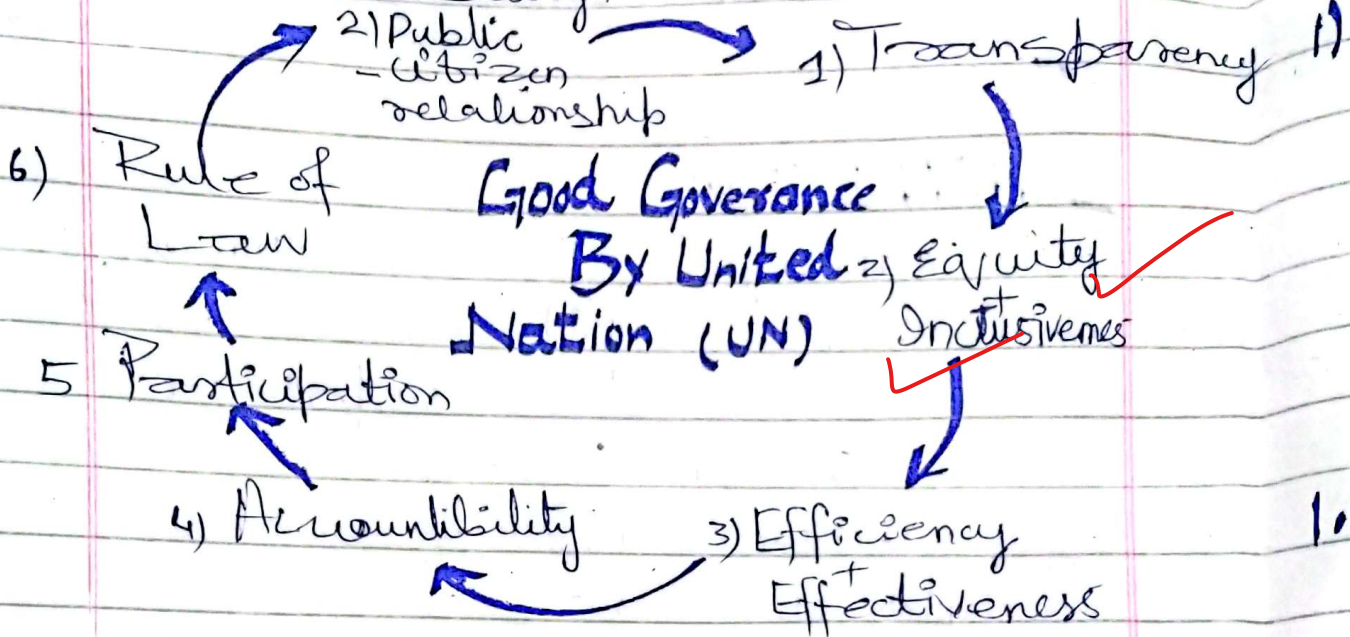 2) Public
- citizen
relationship
1) Transparency
1)
6) Rule of
Law
Good Goverance
By United
Nation (UN)
2) Equity
+
Inclusivemes
5 Participation
4) Accountibility
3) Efficiency
+
Effectiveness
1.